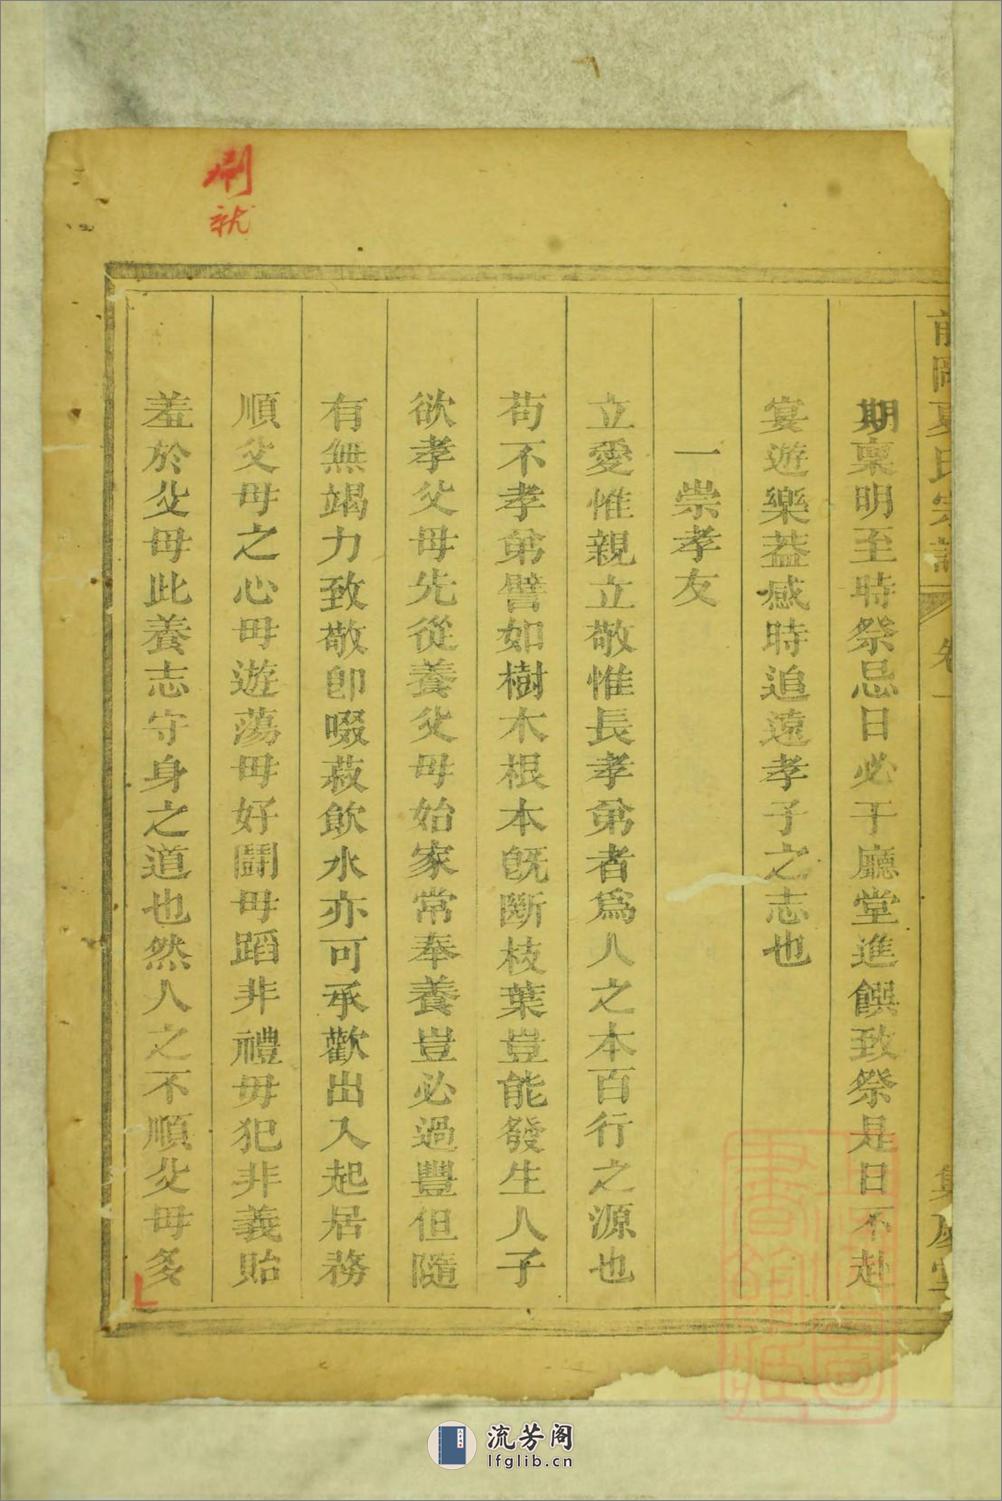 前岡夏氏宗譜 卷一 集慶堂
期稟明至時祭忌日必于廳堂進饌致祭是日不赴
宴遊樂葢感時追遠孝子之志也
一崇孝友
立愛惟親立敬惟長孝弟者爲人之本百行之源也
苟不孝弟譬如樹木根本旣斷枝葉豈能發生人子
欲孝父母先從養父母始家常奉養豈必過豐但隨
有無竭力致敬卽啜菽飲水亦可承歡出入起居務
順父母之心毋遊蕩毋好鬬毋蹈非禮毋犯非義貽
羞於父母此養志守身之道也然人之不順父母多
刷
就
流芳阁
lfglib.cn